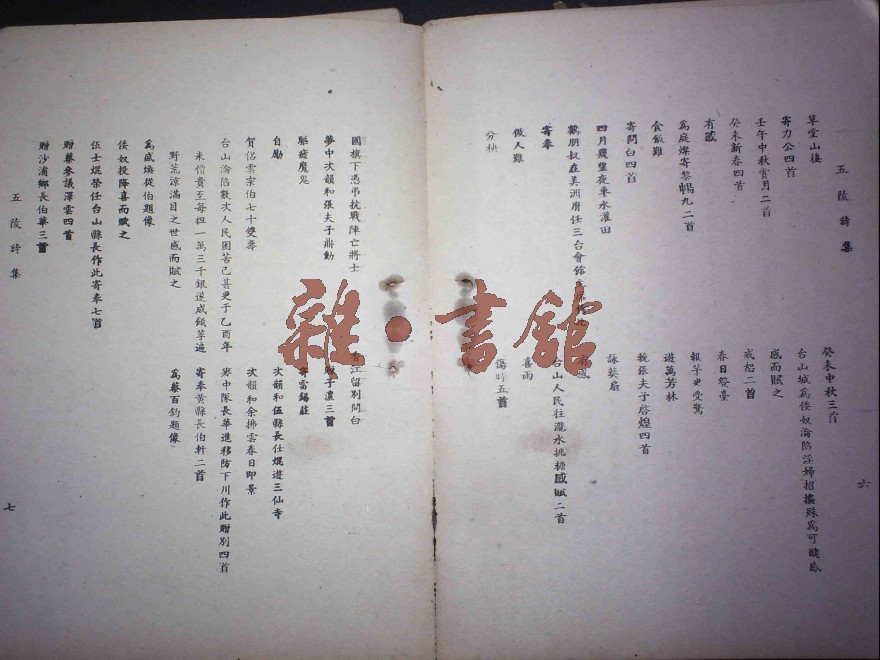 五陵詩集
草堂山棲
寄力公四首
壬午中秋賞月二首
癸未新春四首
有感
為庭燦寄黎暢九二首
食飯難
寄問白四首
四月幾望夜車水灌田
鶴朋叔在美洲膺任三台會館
寄奉
做人難
分秧
癸未中秋三首
台山城為倭奴淪陷淫婦招搖殊為可醜感
感而賦之
戒恕二首
春日祭臺
報竿更受驚
遊萬芳林
輓張夫子啓煌四首
詠葵扇
台山人民往瀧水挑糖感賦二首
喜雨
傷時五首
六
國旗下憑弔抗戰陣亡將士
夢中次韻和張夫子鼎勳
驅瘧魔鬼
自勵
賀侶雲宗伯七十雙壽
台山淪陷數次人民困苦已甚更于乙酉年
米價貴至每担一萬三千銀遂成餓莩遍
野荒涼滿目之世感而賦之
為盛煥從伯題像
倭奴投降喜而賦之
伍士焜榮任台山縣長作此寄奉七首
贈蔡參議澤雲四首
贈沙浦鄉長伯華三首
五陵詩集
江留別問白
子濃三首
寄雷錫莊
次韻和伍縣長仕焜遊三仙寺
次韻和余拂雲春日即景
麥中隊長華進移防下川作此贈別四首
寄奉黃縣長伯軒二首
為蔡百鈞題像
七
雜·書舘